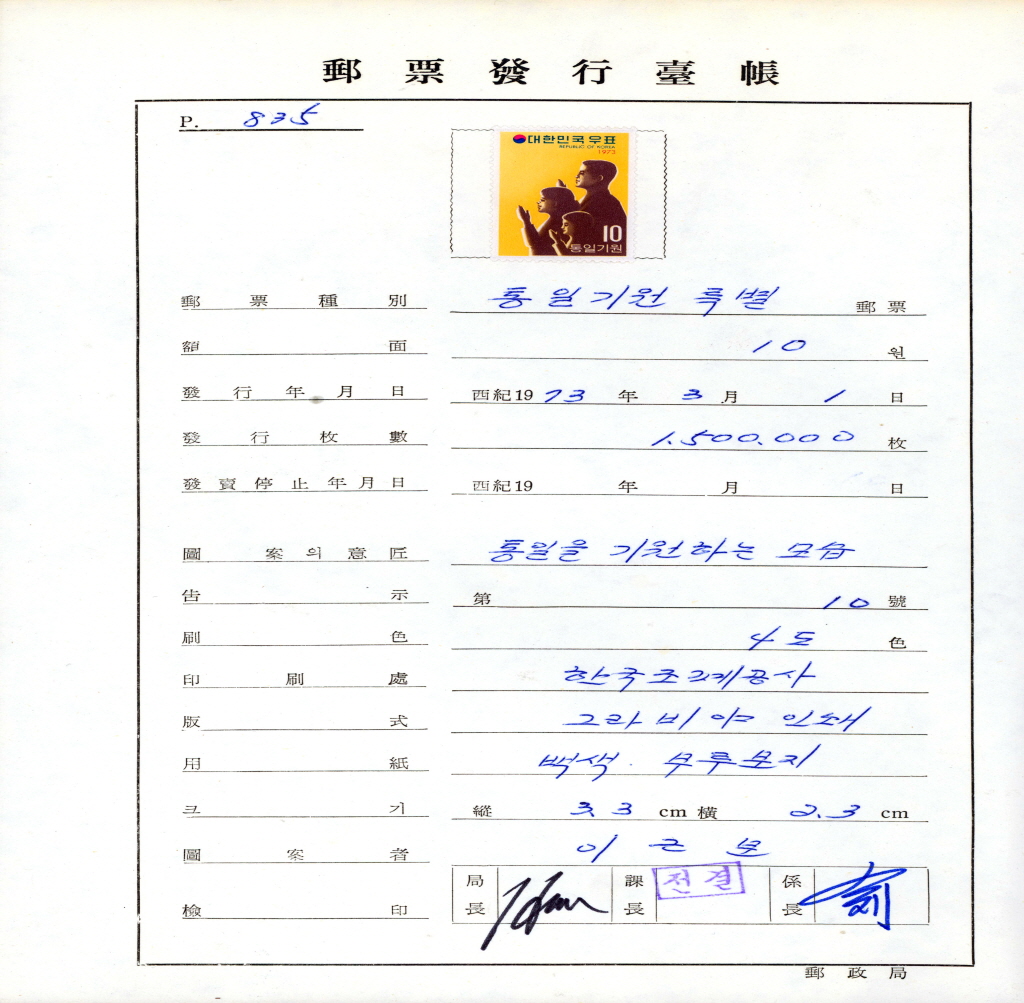 郵票發行臺帳
P. 835
대한민국우표
REPUBLIC OF KOREA
1973
10
통일기원
郵票種別 통일기원 특별 郵票
額面 10 원
發行年月日 西紀19 73 年 3 月 1 日
發行枚數 1.500.000 枚
發賣停止年月日 西紀19 年 月 日
圖案의意匠 통일을 기원하는 모습
告示 第 10 號
刷色 4도 色
印刷處 한국조폐공사
版式 그라비아 인쇄
用紙 백색. 무투문지
크기 縱 3.3 cm 橫 2.3 cm
圖案者 이근문
檢印 局長 課長 전결 係長
郵政局